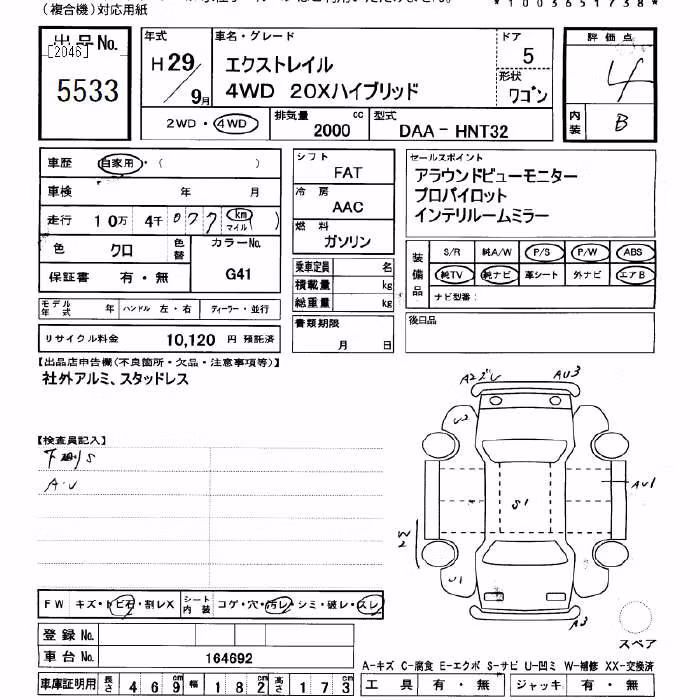 (複合機)対応用紙
*1003651738*
出品No.
[2046]
5533
年式
H29/9月
車名・グレード
エクストレイル
4WD 20Xハイブリッド
ドア
5
形状
ワゴン
2WD・4WD
排気量
2000 cc
型式
DAA-HNT32
評価点
4
内装
B
車歴
自家用・( )
車検 年 月
走行 10万 4千 077 km マイル )
色
クロ
色替
カラーNo.
G41
保証書 有・無
モデル年式 年
ハンドル 左・右
ディーラー・並行
リサイクル料金 10,120 円 預託済
シフト
FAT
冷房
AAC
燃料
ガソリン
乗車定員 名
積載量 kg
総重量 kg
書類期限
月 日
セールスポイント
アラウンドビューモニター
プロパイロット
インテリルームミラー
装備品
S/R 純A/W P/S P/W ABS
純TV 純ナビ 革シート 外ナビ エアB
ナビ型番:
後日品
【出品店申告欄(不良箇所・欠品・注意事項等)】
社外アルミ、スタッドレス
【検査員記入】
下廻りS
A・U
AU3
U2
AU1
S1
W2
U1
A3
スペア
FW キズ・トビ石・割レX
シート内装 コゲ・穴・汚レ・シミ・破レ・スレ
登録No.
車台No. 164692
車庫証明用 長さ 469cm 幅 182cm 高さ 173cm
A-キズ C-腐食 E-エクボ S-サビ U-凹ミ W-補修 XX-交換済
工具 有・無 ジャッキ 有・無